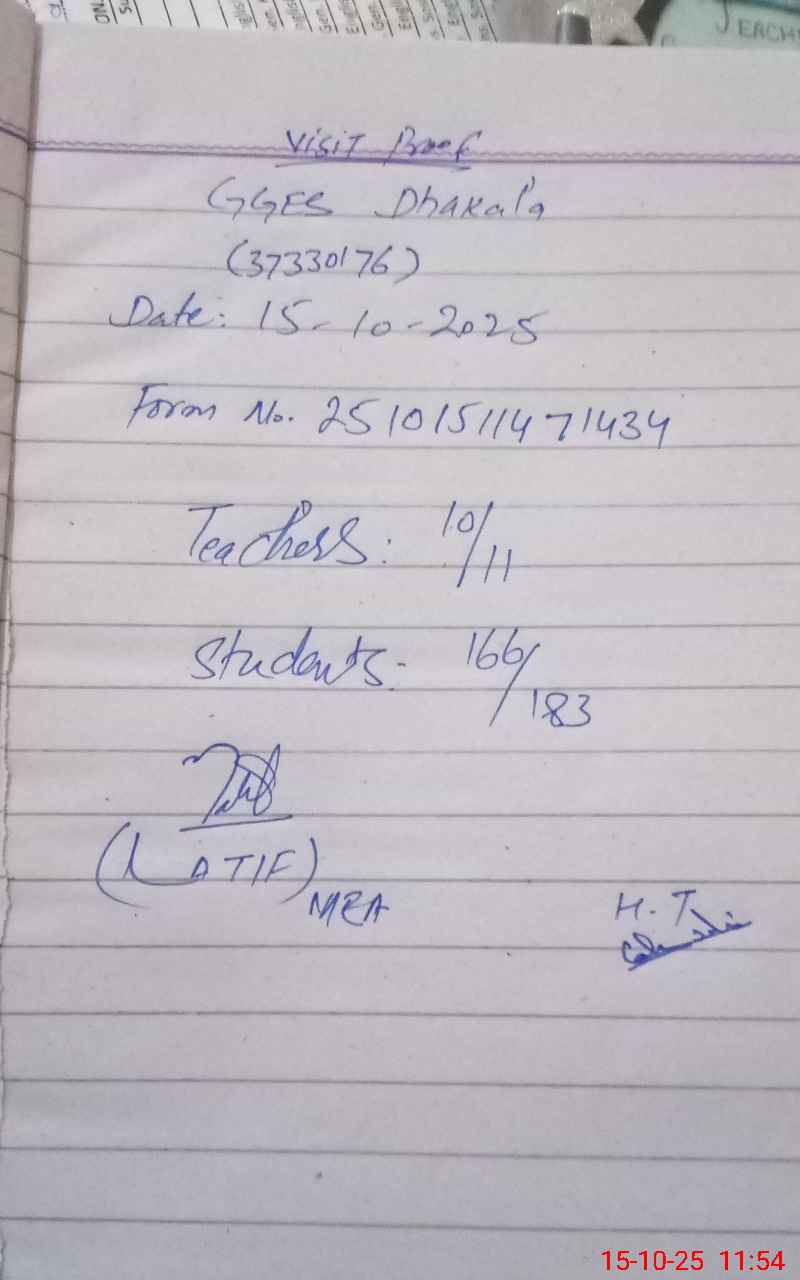 TEACH
Visit Proof
GGES Dhakala
(37330176)
Date: 15-10-2025
Form No. 25101511471434
Teachers: 10/11
Students- 166/183
(LATIF)
MEA
H.T
15-10-25 11:54